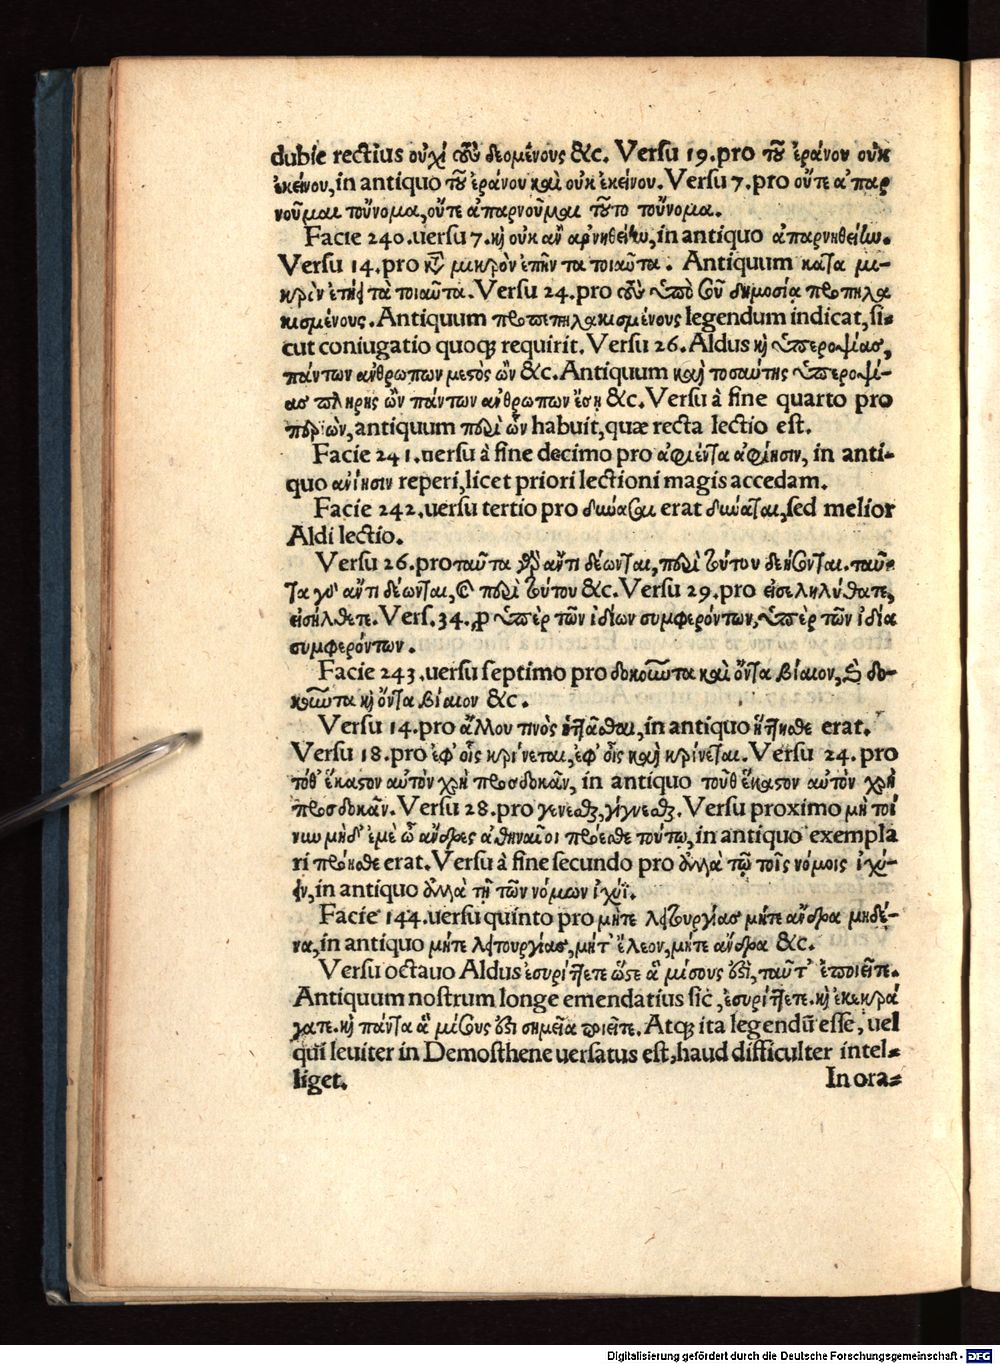 dubie rectius οὐχὶ τοὺς δεομένους &c. Versu 19. pro τοῦ ἐράνου οὐκ
ἐκείνου, in antiquo τοῦ ἐράνου καὶ οὐκ ἐκείνου. Versu 7. pro οὔτε ἀπαρ
νοῦμαι τοὔνομα, οὔτε ἀπαρνοῦμαι τοῦτο τοὔνομα.
Facie 240. uersu 7. κỳ οὐκ ἂν ἀρνηθείην, in antiquo ἀπαρνηθείην.
Versu 14. pro μικρὸν τὰ τοιαῦτα. Antiquum κατὰ μι-
κρὸν τὰ τοιαῦτα. Versu 24. pro δημοσίᾳ προπηλα
κισμένους. Antiquum προπεπηλακισμένους legendum indicat, si-
cut coniugatio quoq; requirit. Versu 26. Aldus κỳ ὑπεροψίας,
πάντων ἀνθρώπων μεστὸς ὢν &c. Antiquum καὶ τοσαύτης ὑπεροψί-
ας πλήρης ὢν πάντων ἀνθρώπων &c. Versu à fine quarto pro
περιών, antiquum περὶ ὧν habuit, quæ recta lectio est.
Facie 241. uersu à fine decimo pro ἀφιέντα ἀφίησιν, in anti-
quo ἀνίησιν reperi, licet priori lectioni magis accedam.
Facie 242. uersu tertio pro erat sed melior
Aldi lectio.
Versu 26. pro ταῦτα ἀντιδέωνται, περὶ τούτου δεήσονται. ταῦ-
τα ἀντιδέωνται, περὶ τούτου &c. Versu 29. pro εἰσεληλύθατε,
εἰσήλθετε. Vers. 34. ꝓ ὑπὲρ τῶν ἰδίων συμφερόντων, ὑπὲρ τῶν ἰδίᾳ
συμφερόντων.
Facie 243. uersu septimo pro δοκοῦντα καὶ ὄντα βίαιον, δο-
κοῦντα κỳ ὄντα βίαιον &c.
Versu 14. pro ἄλλου τινὸς ἡττᾶσθαι, in antiquo ἥττησθε erat.
Versu 18. pro ἐφ' οἷς κρίνεται, ἐφ' οἷς καὶ κρίνεται. Versu 24. pro
τόθ' ἕκαστον αὐτὸν χρὴ προσδοκᾶν, in antiquo τοῦθ' ἕκαστον αὐτὸν χρὴ
προσδοκᾶν. Versu 28. pro γενέσθαι, γίγνεσθαι. Versu proximo μὴ τοί
νυν μηδ' ἐμὲ ὦ ἄνδρες ἀθηναῖοι πρόεσθε τούτῳ, in antiquo exempla
ri πρόησθε erat. Versu à fine secundo pro ἀλλὰ τῷ τοῖς νόμοις ἰσχύ-
ειν, in antiquo ἀλλὰ τῇ τῶν νόμων ἰσχύϊ.
Facie 144. uersu quinto pro μήτε λειτουργίας μήτε ἄνδρα μηδέ-
να, in antiquo μήτε λειτουργίας, μήτ' ἔλεον, μήτε ἄνδρα &c.
Versu octauo Aldus ἐσυρίττετε ὥστε ἃ μίσους ἐστὶ, ταῦτ' ἐποιεῖτε.
Antiquum nostrum longe emendatius sic, ἐσυρίττετε. κỳ ἐκεκρά
γατε. κỳ πάντα ἃ μίσους ἐστὶ σημεῖα ποιεῖτε. Atq; ita legendū esse, uel
qui leuiter in Demosthene uersatus est, haud difficulter intel-
liget. In ora-
Digitalisierung gefördert durch die Deutsche Forschungsgemeinschaft - DFG